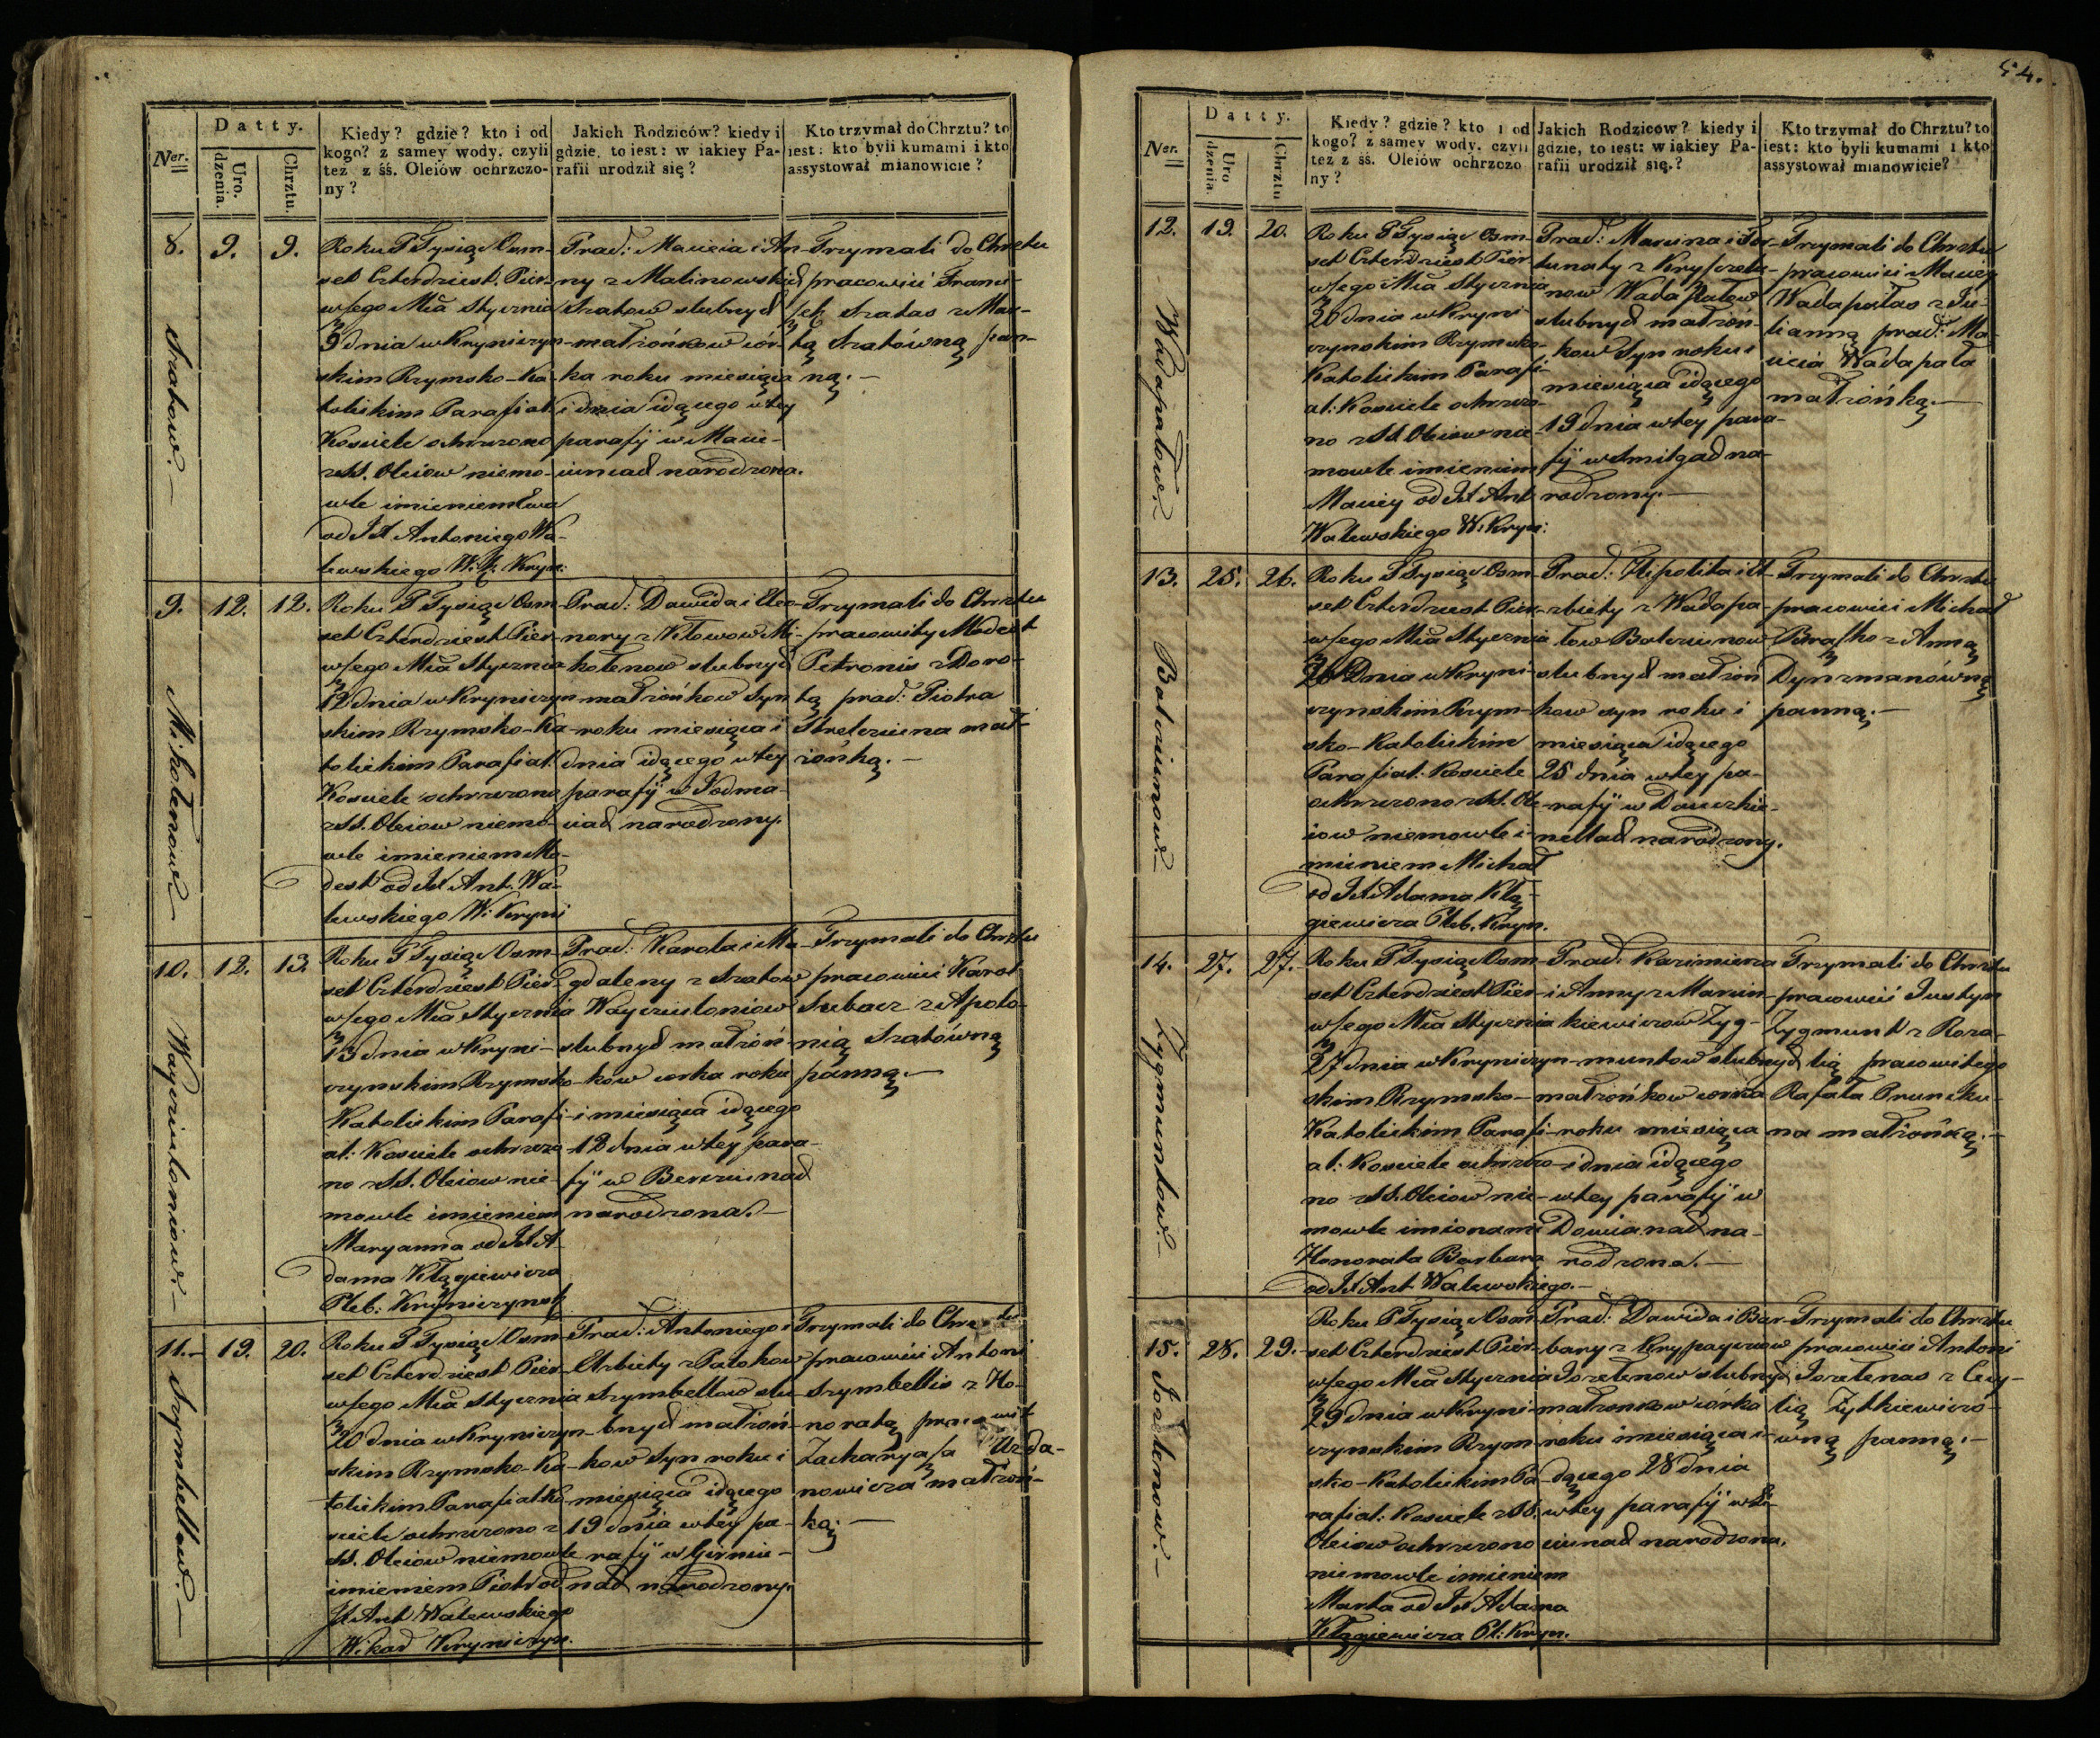 Ner.
Datty.
Uro.
dzenia.
Chrztu.
Kiedy? gdzie? kto i od
kogo? z samey wody, czyli
też z śś. Oleiów ochrzczo-
ny?
Jakich Rodziców? kiedy i
gdzie, to iest: w iakiey Pa-
rafii urodził się?
Kto trzymał do Chrztu? to
iest: kto byli kumami i kto
assystował mianowicie?
8.
9.
9.
Szatow.
Roku P Tysiąc Osm-
set Czterdziest. Pier-
wszego Mca Stycznia
9 dnia w Kryniczyn-
skim Rzymsko-Ka-
tolickim Parafial:
Kosciele ochrzczono
z SS. Oleiow niemo-
wle imieniem Ewa
od JX Antoniego Wa-
lewskiego W: Kryn:
Prad: Macieia i An-
ny z Malinowskich
Szatow slubnych
małżonkow cór-
ka roku miesiąca
i dnia idącego w tey
parafij w Macie-
iuncach narodzona.
Trzymali do Chrztu
pracowici Franci-
szek Szatas z Mar-
tą Szatówną pan-
ną.
9.
12.
12.
Mikolenow
Roku P Tysiąc Osm-
set Czterdziest Pier-
wszego Mca Stycznia
12 dnia w Kryniczyn-
skim Rzymsko-Ka-
tolickim Parafial:
Kosciele ochrzczono
z SS. Oleiow niemo-
wle imieniem Mo-
dest od JX Ant. Wa-
lewskiego W: Kryni
Prad: Dawida i Eleo-
nory z Kłowow Mi-
kolenow slubnych
małżonkow Syn
roku miesiąca i
dnia idącego w tey
parafij w Jodma-
ciach narodzony.
Trzymali do Chrztu
pracowity Modest
Petronis z Doro-
tą prad: Piotra
Streleciuna mał-
żonką.
10.
12.
13.
Wayciuloniow.
Roku P Tysiąc Osm-
set Czterdziest Pier-
wszego Mca Stycznia
13 dnia w Kryni-
czynskim Rzymsko-
Katolickim Parafi-
al: Kosciele ochrzczo-
no z SS. Oleiow nie-
mowle imieniem
Maryanna od JX A-
dama Kłągiewicza
Pleb: Kryniczynsk
Prad: Karola i Ma-
gdaleny z Szatow
Wayciuloniow
slubnych małżon-
kow corka roku
i miesiąca idącego
12 dnia w tey para-
fij w Berzcinach
narodzona.
Trzymali do Chrztu
pracowici Karol
Subacz z Apolo-
nią Szatówną
panną.
11.
19.
20.
Szymbellow.
Roku P Tysiąc Osm-
set Czterdziest Pier-
wszego Mca Stycznia
20 dnia w Kryniczyn-
skim Rzymsko-Ka-
tolickim Parafial Ko-
sciele ochrzczono z
SS. Oleiow niemowle
imieniem Piotr od
JX Ant Walewskiego
Wikar Kryniczyn.
Prad: Antoniego i
Elzbiety z Patokow
Szymbellow slu-
bnych małżon-
kow Syn roku i
miesiąca idącego
19 dnia w tey pa-
rafij w Girniu-
nach narodzony.
Trzymali do Chrztu
pracowici Antoni
Szymbellis z Ho-
noratą pracowit
Zacharyasza Uzda-
nowicza małżon-
ką.
54.
Ner.
Datty.
Uro
dzenia.
Chrztu
Kiedy? gdzie? kto i od
kogo? z samey wody, czyli
też z śś. Oleiów ochrzczo
ny?
Jakich Rodziców? kiedy i
gdzie, to iest: w iakiey Pa-
rafii urodził się.?
Kto trzymał do Chrztu? to
iest: kto byli kumami i kto
assystował mianowicie?
12.
19.
20.
Wadapałow
Roku P Tysiąc Osm-
set Czterdziest Pier-
wszego Mca Stycznia
20 dnia w Kryni-
czynskim Rzymsko-
Katolickim Parafi-
al: Kosciele ochrzczo-
no z SS. Oleiow nie-
mowle imieniem
Maciey od JX Ant
Walewskiego W: Kryn:
Prad: Marcina i For-
tunaty z Kryszele-
now Wadapałow
slubnych małżon-
kow Syn roku i
miesiąca idącego
19 dnia w tey para-
fij w Smilgach na-
rodzony.
Trzymali do Chrztu
pracowici Maciey
Wadapałas z Ju-
lianną prad: Ma-
cieia Wadapała
małżonką.
13.
25.
26.
Balciunow.
Roku P Tysiąc Osm-
set Czterdziest Pier-
wszego Mca Stycznia
26 Dnia w Kryni-
czynskim Rzym-
sko-Katolickim
Parafial: Kosciele
ochrzczono z SS. Ole-
iow niemowle i-
mieniem Michał
od JX Adama Kłą-
giewicza Pleb. Kryn.
Prad: Hipolita i El-
zbiety z Wadapa-
łow Balciunow
slubnych małżon
kow syn roku i
miesiąca idącego
25 dnia w tey pa-
rafij w Dauczki-
nellach narodzony.
Trzymali do Chrztu
pracowici Michał
Braszko z Anną
Dynzmanówną
panną.
14.
27.
27.
Zygmuntow.
Roku P Tysiąc Osm-
set Czterdziest Pier-
wszego Mca Stycznia
27 dnia w Kryniczyn-
skim Rzymsko-
Katolickim Parafi-
al: Kosciele ochrzczo-
no z SS. Oleiow nie-
mowle imionami
Honorata Barbara
od JX Ant. Walewskiego.
Prad: Kazimierza
i Anny z Marcin-
kiewiczow Zyg-
muntow slubnych
małżonkow corka
roku miesiąca
i dnia idącego
w tey parafij w
Dowianach na-
rodzona.
Trzymali do Chrztu
pracowici Justyn
Zygmunt z Roza-
lią pracowitego
Rafała Prunsku-
na małżonką.
15.
28.
29.
Jozelenow.
Roku P Tysiąc Osm-
set Czterdziest Pier-
wszego Mca Stycznia
29 dnia w Kryni-
czynskim Rzym-
sko-Katolickim Pa
rafial: Kosciele z SS.
Oleiow ochrzczono
niemowle imieniem
Marta od JX Adama
Kłągiewicza Pl: Kryn.
Prad: Dawida i Bar-
bary z Krypayciow
Jozelenow slubnych
małżonkow córka
roku miesiąca i-
dącego 28 dnia
w tey parafij w
ciunach narodzona.
Trzymali do Chrztu
pracowici Antoni
Jozelenas z Cecy-
lią Zytkiewiczó-
wną panną.